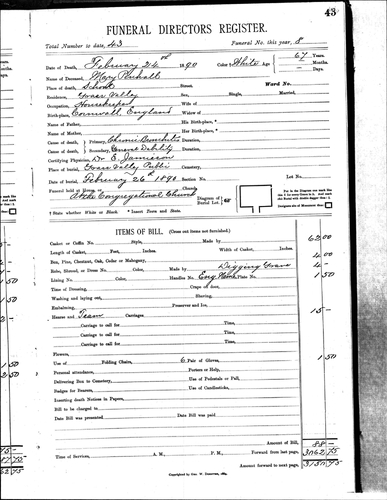 43
FUNERAL DIRECTORS REGISTER.
Total Number to date, 43 Funeral No. this year, 8
Date of Death, February 24 1890 Color White Age 67 Years. Months. Days.
Name of Deceased, Mary
Place of death, School Street, Ward No.
Residence, Grass Valley Single, Married,
Occupation, Housekeeper Wife of
Birth-place, Cornwall, England Widow of
Name of Father, His Birth-place,
Name of Mother, Her Birth-place,
Cause of death, Primary, Chronic Bronchitis Duration,
Cause of death, Secondary, General Debility Duration,
Certifying Physician, Dr Jamieson
Place of burial, Grass Valley Public Cemetery,
Date of burial, February 26th 1890 Section No. Lot No.
Funeral held at House, or Church, At the Congregational Church
Diagram of Burial Lot
† State whether White or Black. * Insert Town and State.
ITEMS OF BILL.
Casket or Coffin No. Style, Made by 62.00
Length of Casket, Feet, Inches. Width of Casket, Inches.
Box, Pine, Chestnut, Oak, Cedar or Mahogany, 4.00
Robe, Shroud, or Dress No. Color, Made by Digging Grave 4 -
Lining No. Color, Handles No. Plate No. 1 50
Time of Dressing, Crape of door,
Washing and laying out, Shaving,
Embalming, Preserve and Ice,
Hearse and Team Carriages, 15 -
Carriage to call for Time,
Carriage to call for Time,
Carriage to call for Time,
Carriage to call for Time,
Flowers,
Use of Folding Chairs, 6 Pair of Gloves, 1 50
Personal attendance, Porters or Help,
Delivering Box to Cemetery, Use of Pedestals or Pall,
Badges for Bearers, Use of Candlesticks,
Inserting death Notices in Papers,
Bill to be charged to
Date Bill was presented Date Bill was paid
Amount of Bill, 88 -
Time of Services, A. M., P. M., Forward from last page,
Amount forward to next page,